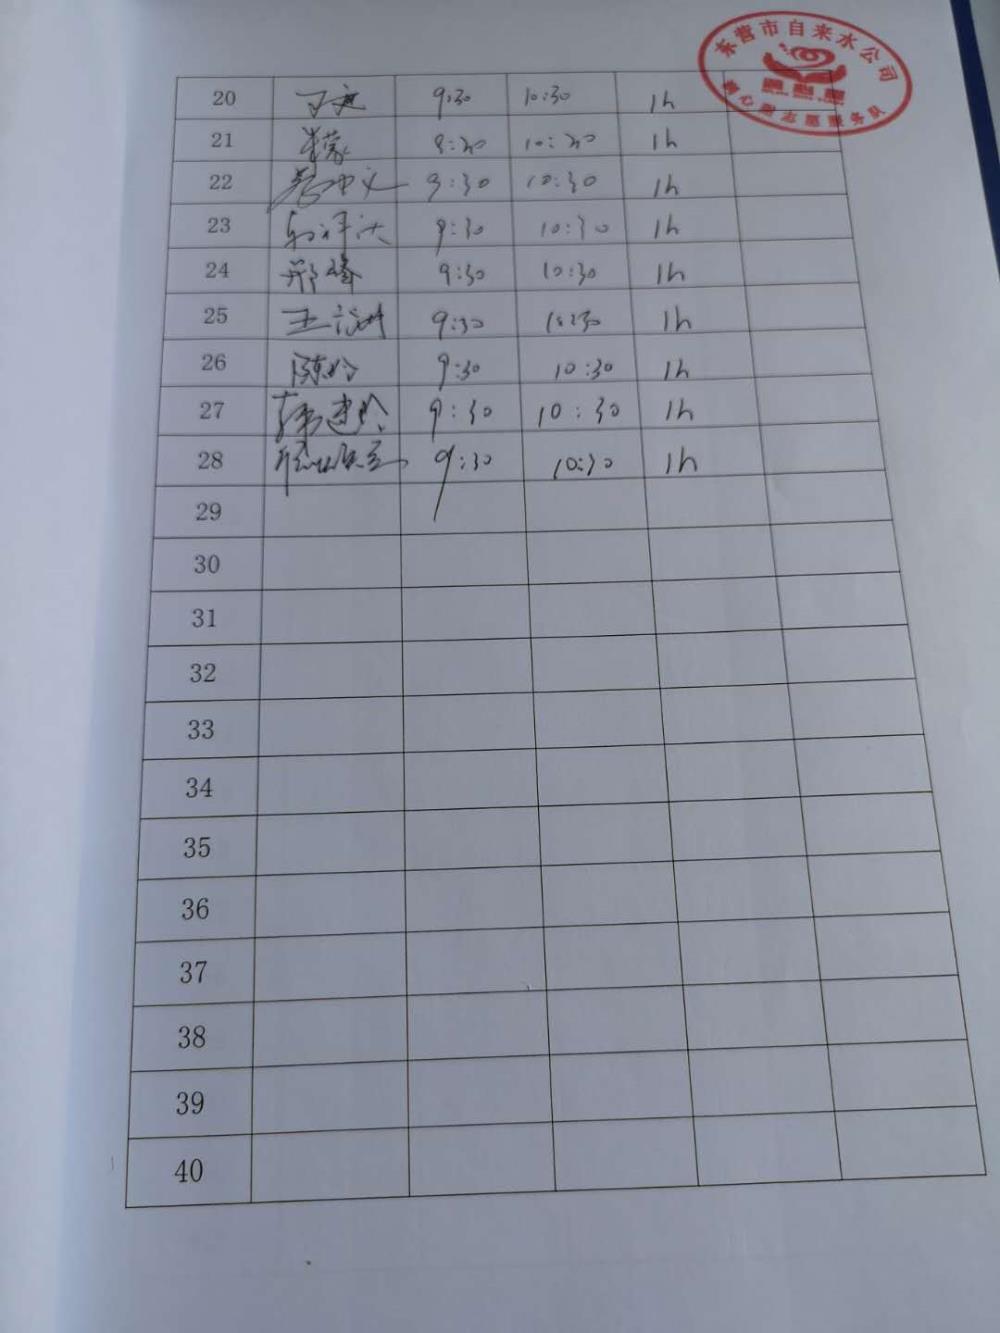 东营市自来水公司
志愿服务队
20 9:30 10:30 1h
21 9:30 10:30 1h
22 9:30 10:30 1h
23 9:30 10:30 1h
24 邢峰 9:30 10:30 1h
25 9:30 10:30 1h
26 陈玲 9:30 10:30 1h
27 韩建玲 9:30 10:30 1h
28 9:30 10:30 1h
29
30
31
32
33
34
35
36
37
38
39
40